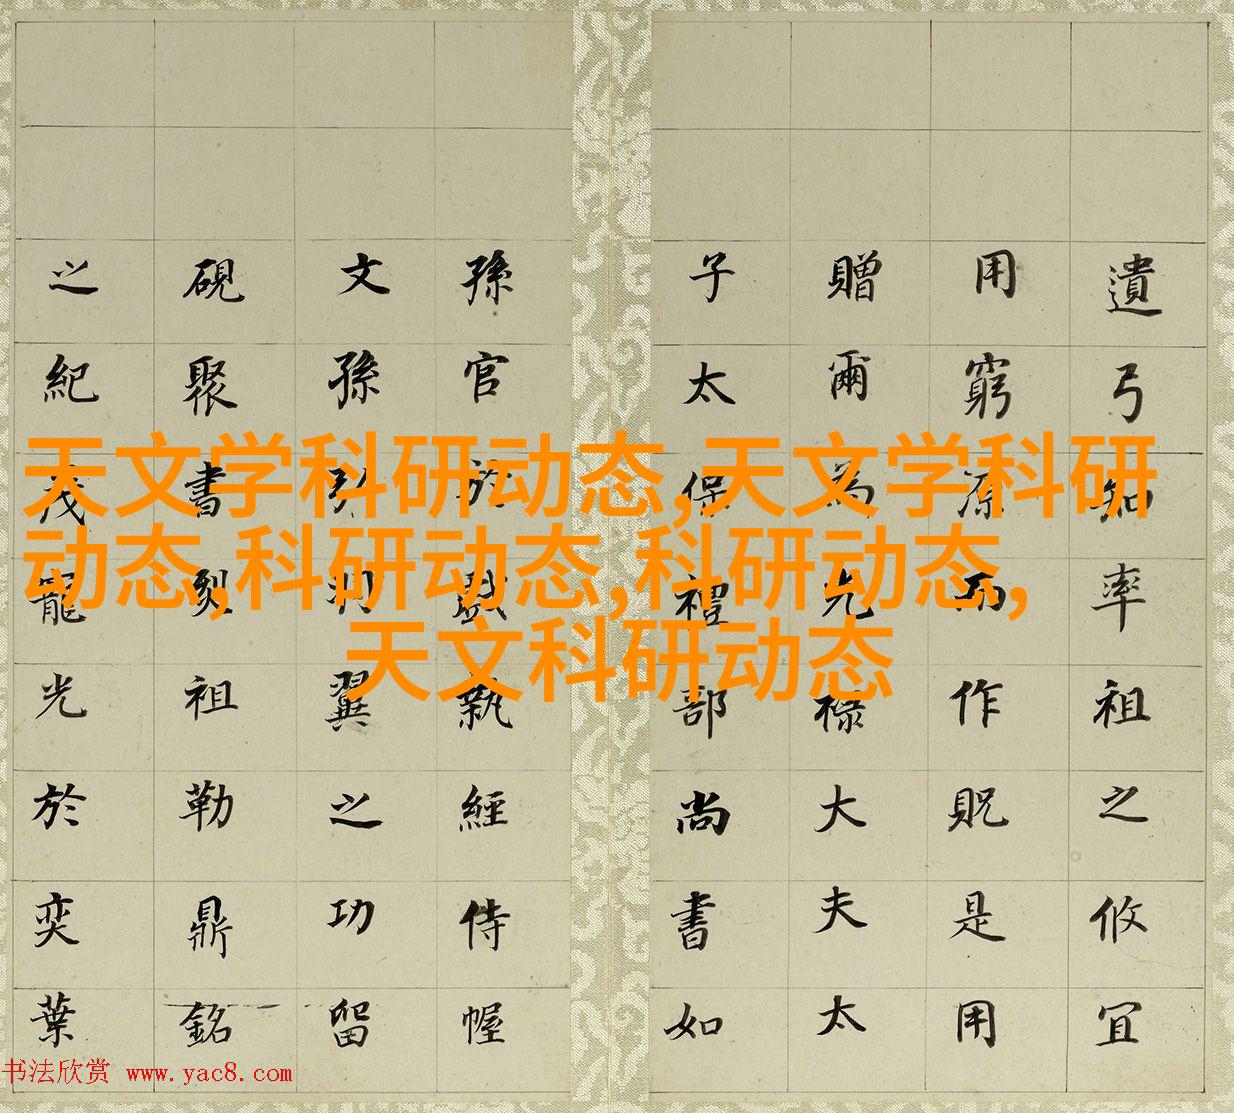 遺弓知率祖之攸宜
用窮源而作貺是用
贈爾為光祿大夫太
子太保禮部尚書如
孫官於戲執經侍幄
文孫羽翼之功留
硯聚書烈祖勒鼎銘
之紀茂寵光於奕葉
天文学科研动态,天文学科研
动态,科研动态,科研动态,
天文科研动态
书法欣赏 www.yac8.com